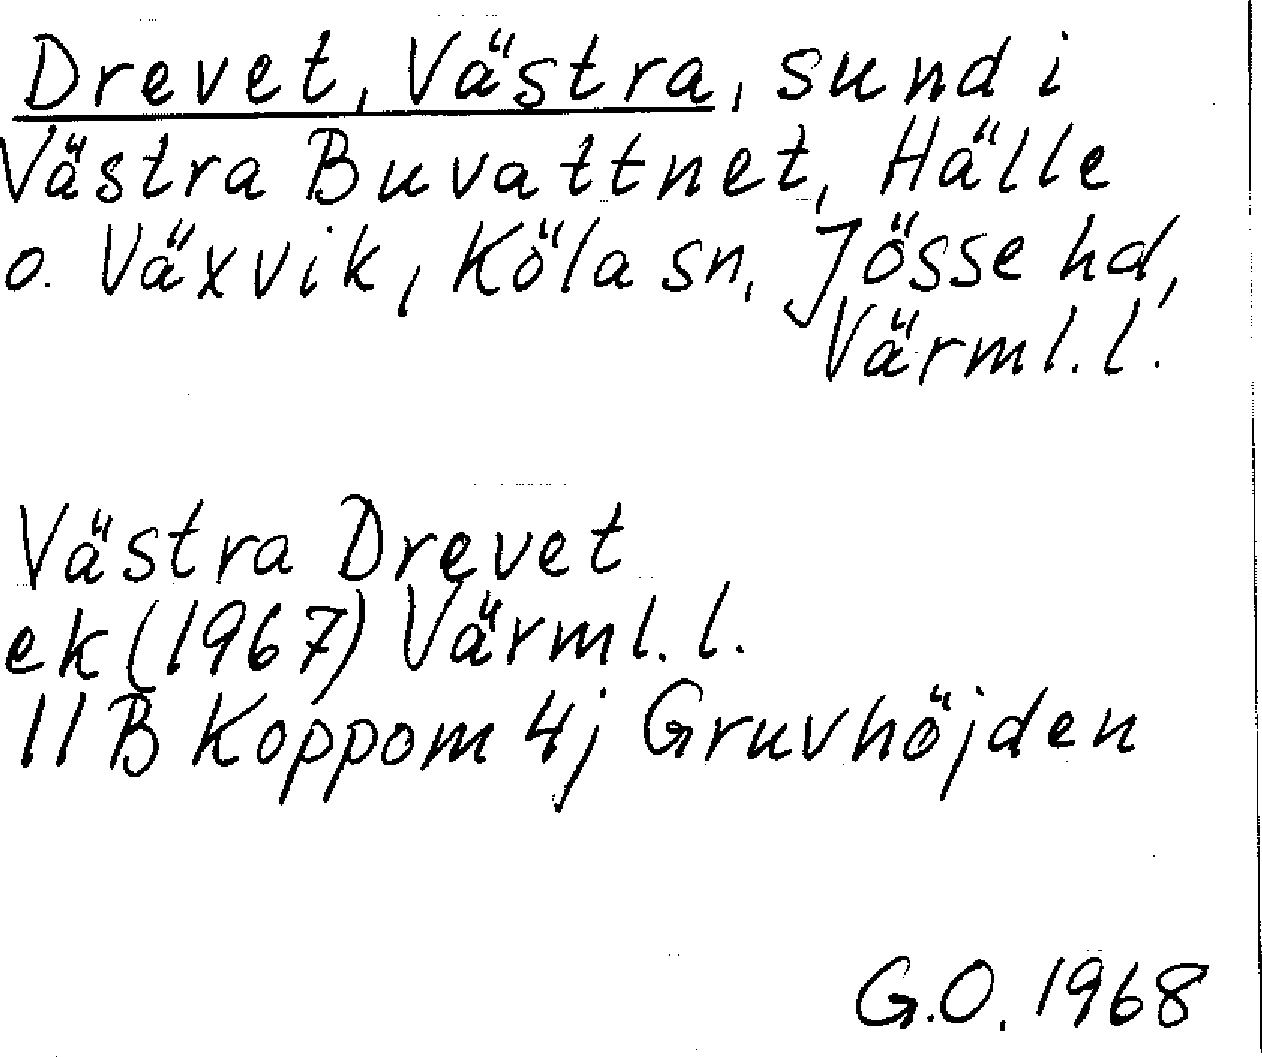 Drevet, Västra, sund i
Västra Buvattnet, Hälle
o. Växvik, Köla sn, Jösse hd,
Värml. l.
Västra Drevet
ek (1967) Värml. l.
11 B Koppom 4j Gruvhöjden
G.O. 1968